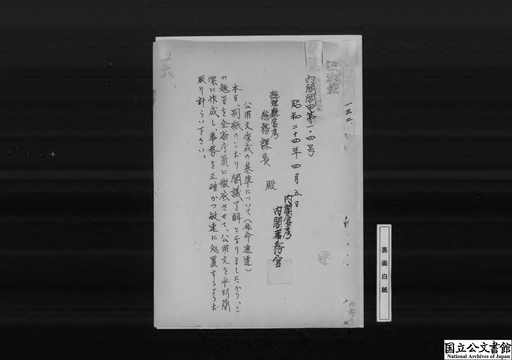 内閣閣甲第一〇四号
昭和二十四年四月五日
内閣官房
内閣事務官
総務課長 殿
公用文作成の基準について(依命通達)
本日、別紙のとおり閣議了解となりましたから、こ
の趣旨を全部庁員に徹底させて、公用文を平明簡
潔に作成し、事務を正確かつ敏速に処置するようお
取り計らい下さい。
裏面白紙
国立公文書館
National Archives of Japan